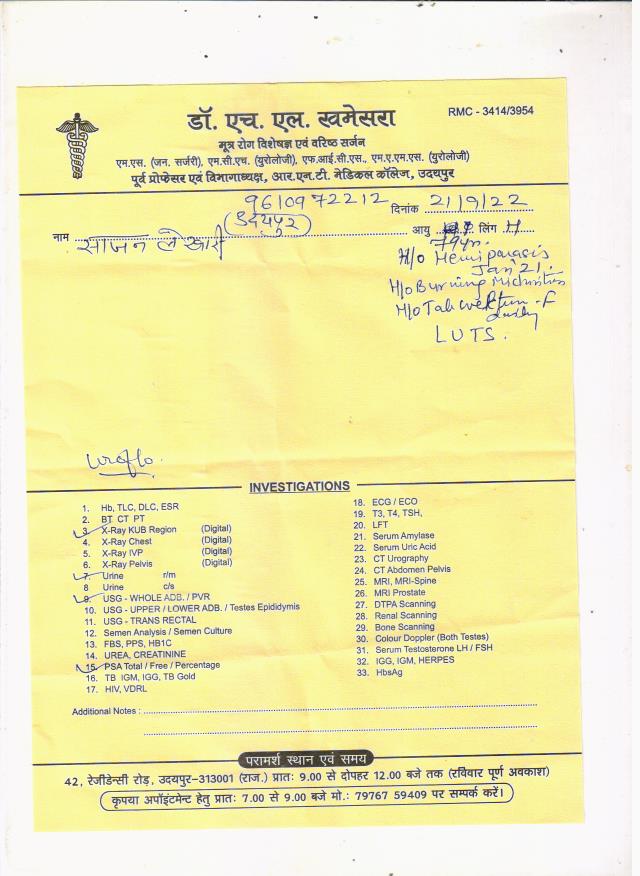 डॉ. एच. एल. खमेसरा
RMC - 3414/3954
मूत्र रोग विशेषज्ञ एवं वरिष्ठ सर्जन
एम.एस. (जन. सर्जरी), एम.सी.एच. (युरोलोजी), एफ.आई.सी.एस., एम.ए.एम.एस. (युरोलोजी)
पूर्व प्रोफेसर एवं विभागाध्यक्ष, आर.एन.टी. मेडिकल कॉलेज, उदयपुर
9610972212
दिनांक 21/9/22
(उदयपुर)
नाम साजन ले खारी आयु लिंग M
79yr.
H/o Hemiparasis
Jan 21.
H/o Burning Micturition
H/o Tab -F
daily
LUTS.
uroflo.
INVESTIGATIONS
1. Hb, TLC, DLC, ESR
2. BT CT PT
3. X-Ray KUB Region (Digital)
4. X-Ray Chest (Digital)
5. X-Ray IVP (Digital)
6. X-Ray Pelvis (Digital)
7. Urine r/m
8 Urine c/s
9. USG - WHOLE ADB. / PVR
10. USG - UPPER / LOWER ADB. / Testes Epididymis
11. USG - TRANS RECTAL
12. Semen Analysis / Semen Culture
13. FBS, PPS, HB1C
14. UREA, CREATININE
15. PSA Total / Free / Percentage
16. TB IGM, IGG, TB Gold
17. HIV, VDRL
18. ECG / ECO
19. T3, T4, TSH,
20. LFT
21. Serum Amylase
22. Serum Uric Acid
23. CT Urography
24. CT Abdomen Pelvis
25. MRI, MRI-Spine
26. MRI Prostate
27. DTPA Scanning
28. Renal Scanning
29. Bone Scanning
30. Colour Doppler (Both Testes)
31. Serum Testosterone LH / FSH
32. IGG, IGM, HERPES
33. HbsAg
Additional Notes :
परामर्श स्थान एवं समय
42, रेजीडेन्सी रोड़, उदयपुर-313001 (राज.) प्रातः 9.00 से दोपहर 12.00 बजे तक (रविवार पूर्ण अवकाश)
कृपया अपॉइंटमेन्ट हेतु प्रातः 7.00 से 9.00 बजे मो.: 79767 59409 पर सम्पर्क करें।